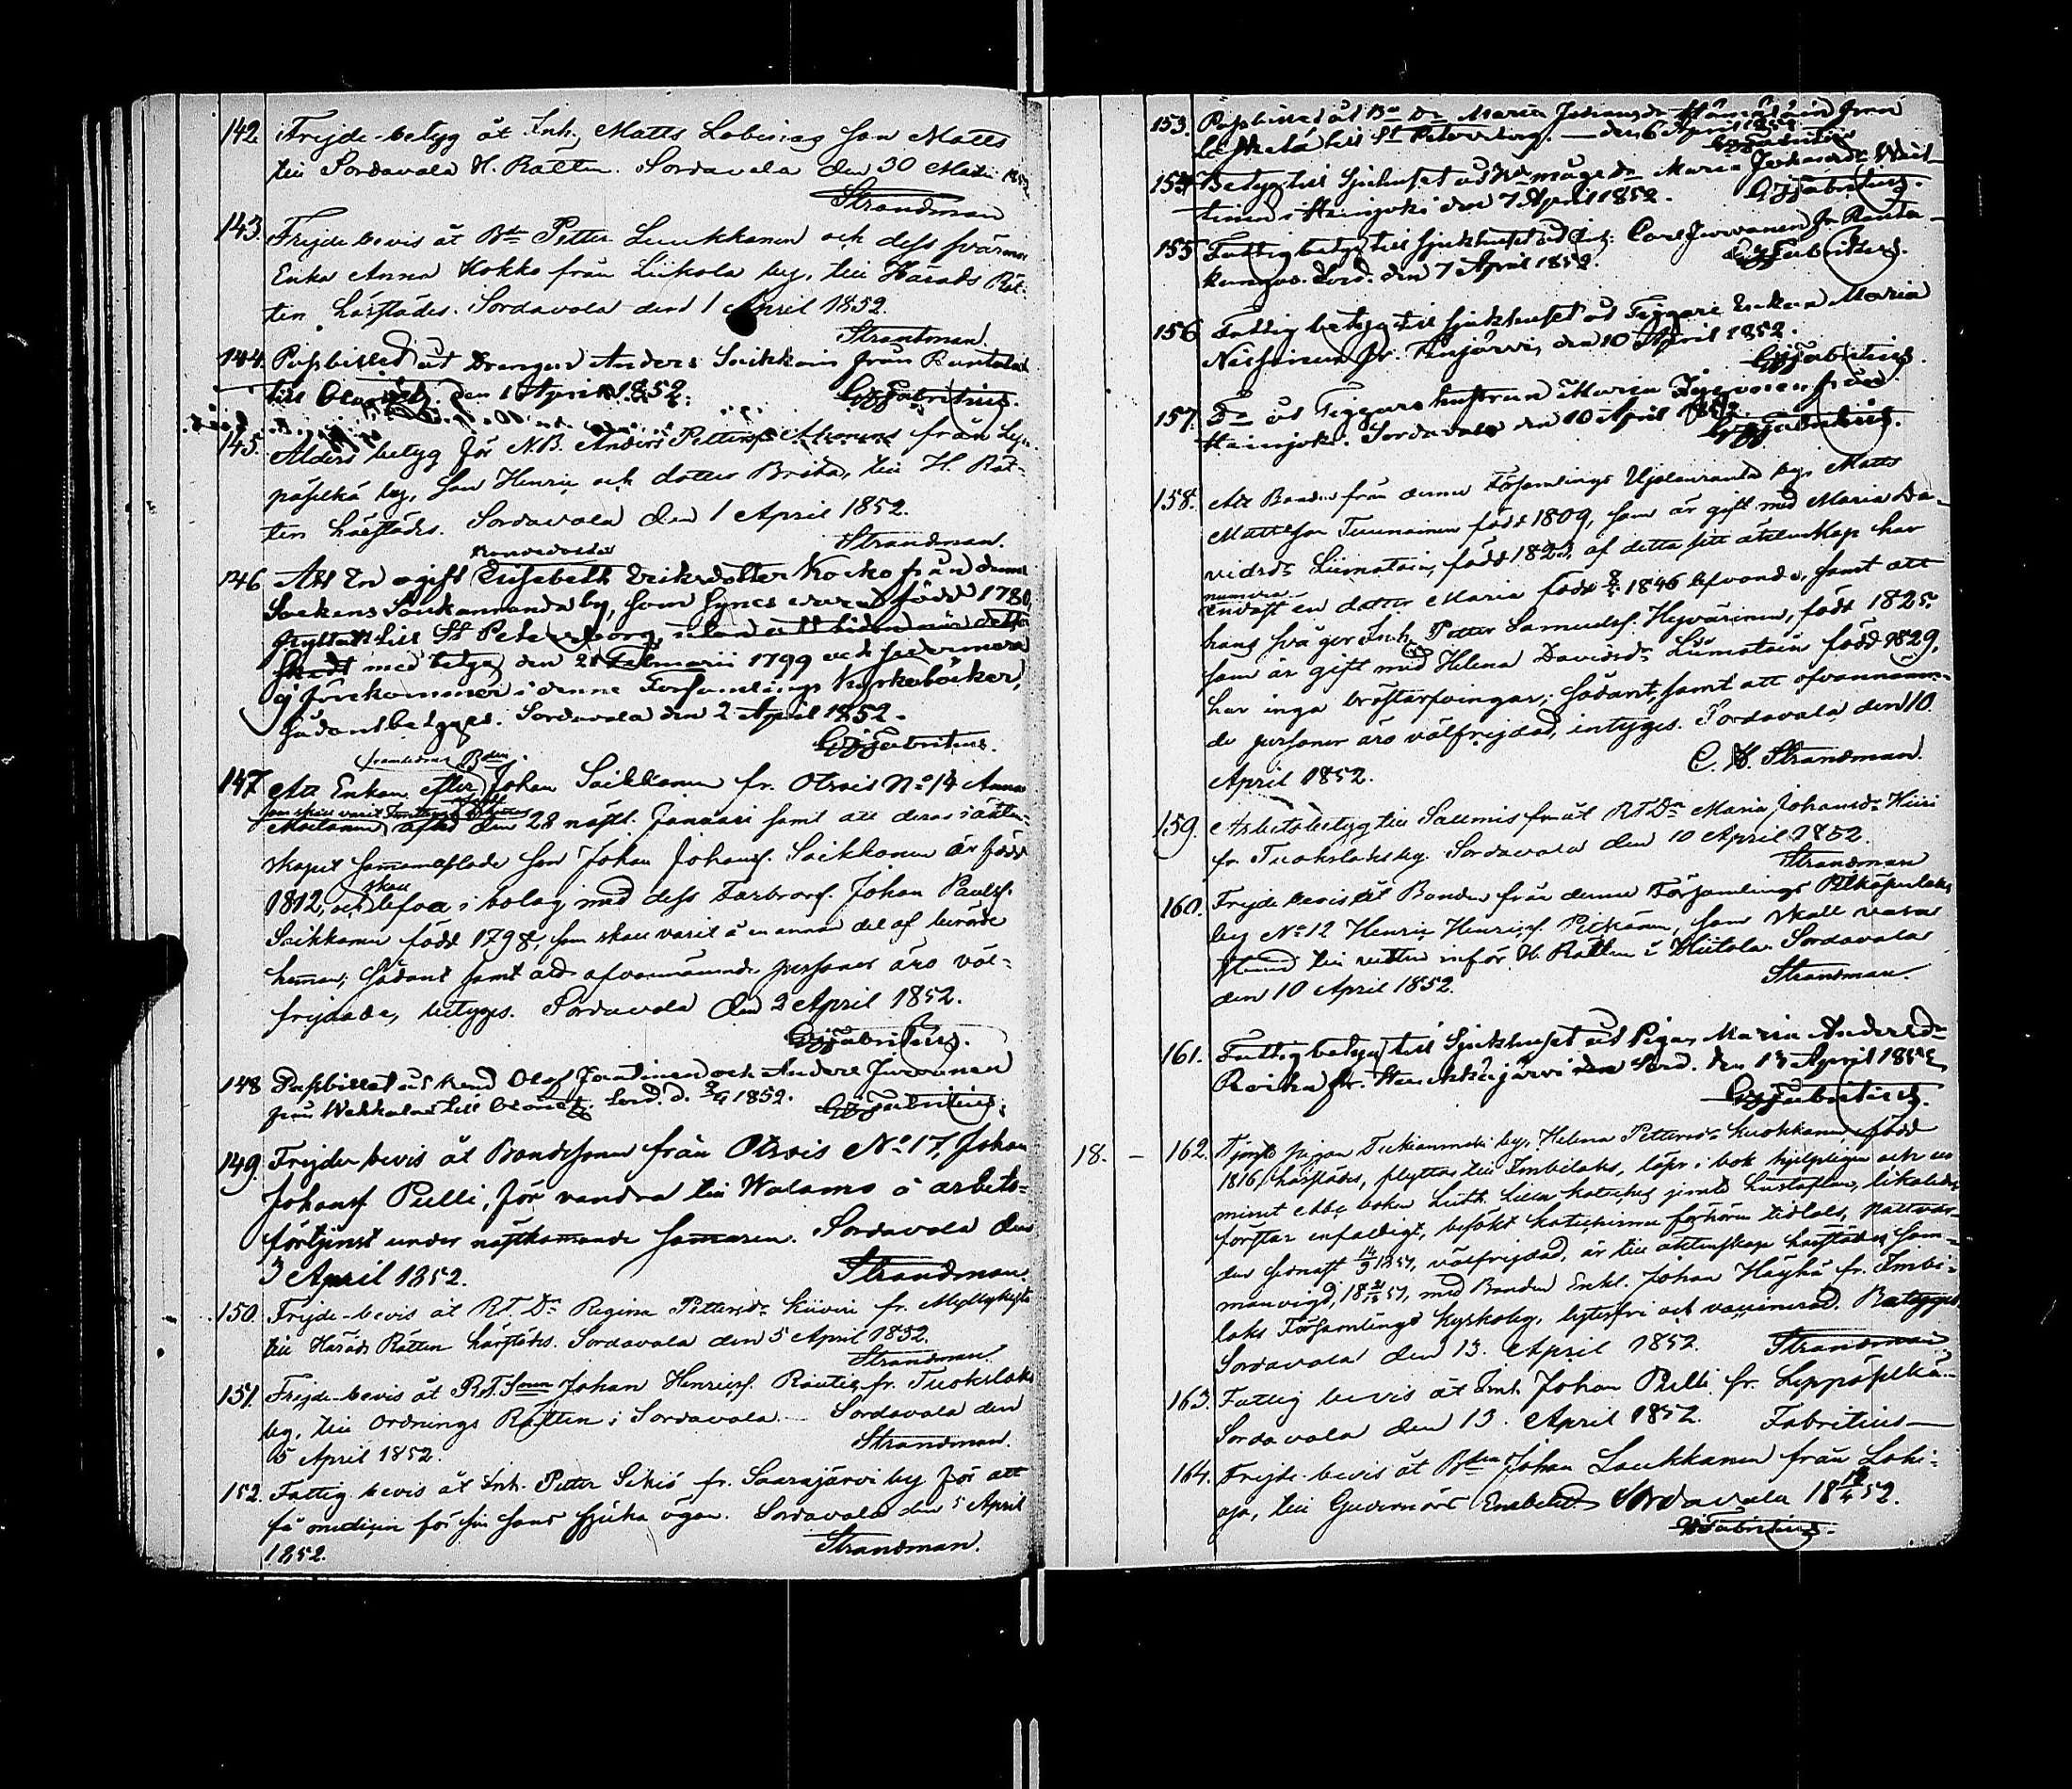 142. Frejde-betyg åt Inh. Matts Lobinias son Matts
till Sordavala H. Rätten. Sordavala den 30 Martii 1852
Strandman
143. Frejde bevis åt Bdn Petter Luukkanen och dess svärmor
Enka Anna Kokko från Liikola by, till Härads Rät-
ten härstädes. Sordavala den 1 April 1852.
Strandman.
144. Passbilled åt Drengen Anders Saikkoin från Rantala
till Olonetz. den 1 April 1852.
GJFabritius.
145. Ålders betyg för N.B. Anders Petterss. Ahonens från Lep-
päselkä by, son Henric och dotter Brita, till H. Rät-
ten härstädes. Sordavala den 1 April 1852.
Strandman.
146. Att En ogift Elisabeth Eriksdotter Kocko från denne
Sockens by, som synes varit född 1780,
flyttat till St Petersborg,
med betyg den 28 Februarii 1799 och sedermera
ej förekommer i denne Församlings Kyrkoböcker,
sådant betyges. Sordavala den 2 April 1852.
GJFabritius.
framledne Bden
147. Att Enkan efter Johan Saikkonen fr. Otrois No 14 Anna
afled den 28 näst. Januari samt att deras i äkten-
skapet sammanaflade son Johan Johanss. Saikkonen är född
skall
1812, och lefva i bolag med dess Farbrors. Johan Paulss.
Saikkonen född 1798, som skall varit å en annan del af berörde
heman; Sådant samt att ofvannämnde personer äro väl-
frejdade, betyges. Sordavala den 2 April 1852.
GJFabritius.
148. Passbillet åt Olof Jantinen och Anders Jurvanen
från till Olonetz. Sord. d. 3/4 1852. GJFabritius.
149. Frejde bevis åt Bondesonen från Otrois No 17, Johan
Johanss Pulli, för vandra till Walamo å arbets-
förtjenst under nästkommande sommaren. Sordavala den
3 April 1852. Strandman.
150. Frejde-bevis åt Rt. Dr Regina Pettersdr Kiiveri fr. Myllykylä
till Härads Rätten härstädes. Sordavala den 5 April 1852.
Strandman.
151. Frejde-bevis åt Rt. Sonen Johan Henricss. Rautio fr. Tuokslaks
by, till Ordnings Rätten i Sordavala. Sordavala den
5 April 1852. Strandman.
152. Fattig bevis åt Inh. Petter Sikiö fr. Saarajärvi by för att
få medicin för sin sons sjuka ögon. Sordavala den 5 April
1852. Strandman.
153. Passbilled åt Bde Dr Maria Johansdr Hämäläin från
Leskelä till St Petersborg. — den 6 April 1852
GJFabritius
154. Betyg till Sjukhuset åt Maria Wäit-
tinen i Hainjoki den 7 April 1852. GJFabritius.
155. Fattig betyg till Sjukhuset åt Inh. Carl Jurvanen fr. Ranta-
kangas. Sord. den 7 April 1852. GJFabritius.
156. Fattig betyg till sjukhuset åt Tiggare Enkan Maria
Nissinen fr. den 10 April 1852.
GJFabritius.
157. Do åt Tiggare hustrun Maria från
Hainjoki. Sordavala den 10 April 1852.
GJFabritius.
158. Att Bonden från denne Församlings Ujalanranta by, Matts
Mattsson Tuunainen född 1809, som är gift med Maria Da-
vidsdr Liimatain, född 1823, af detta sitt äktenskap har
numera
endast en dotter Maria född 1846 lefvande, samt att
hans svåger Inh. Petter Samuelss. Heyväriinen, född 1825,
som är gift med Helena Davidsdr Liimatain född 1829,
har inga bröstarfvingar; Sådant, samt att ofvannämn-
de personer äro välfrejdad, intyges. Sordavala den 10
April 1852. C. H. Strandman.
159. Arbetsbetyg till Salmis från åt Rt Dr Maria Johansdr Kiiri
fr. Tuokslaks by. Sordavala den 10 April 1852.
Strandman
160. Frejde bevis åt Bonden från denne Församlings
by No 12 Henric Henricss. Pitkänen, som skall vara
till rätten inför H. Rätten i Kiitola. Sordavala
den 10 April 1852. Strandman.
161. Fattig betyg till Sjukhuset åt Pigan Maria Andersdr
Roika fr. Haukkajärvi Sord. den 13 April 1852
GJFabritius.
18. — 162. Tjenste pigan Tuckianmäki by, Helena Pettersdr Kuokkanen född
1816, härstädes, flyttar till Imbilaks, läser i bok hjelpligen och ur
minnet abc boken Luth. Lilla katechis jemte hustaflan, likaledes
förstår enfaldigt, besökt katechismi förhören tidtals, nattvar-
den sednast 14/9 1851, välfrejdad, är till äktenskap härstädes sam-
manvigd, 18 21/12 51, med Bonden Enkl. Johan Häyhä fr. Imbi-
laks Församlings Kyrkoby, lytesfri och vaccinerad. Betyges
Sordavala den 13. April 1852. Strandman
163. Fattig bevis åt Inh. Johan Pulli fr. Leppäselkä.
Sordavala den 13. April 1852. Fabritius—
164. Frejde-bevis åt Bden Johan Laukkanen från Lohi-
oja, till Guvernörs Embetet Sordavala 18 13/4 52.
GJFabritius.